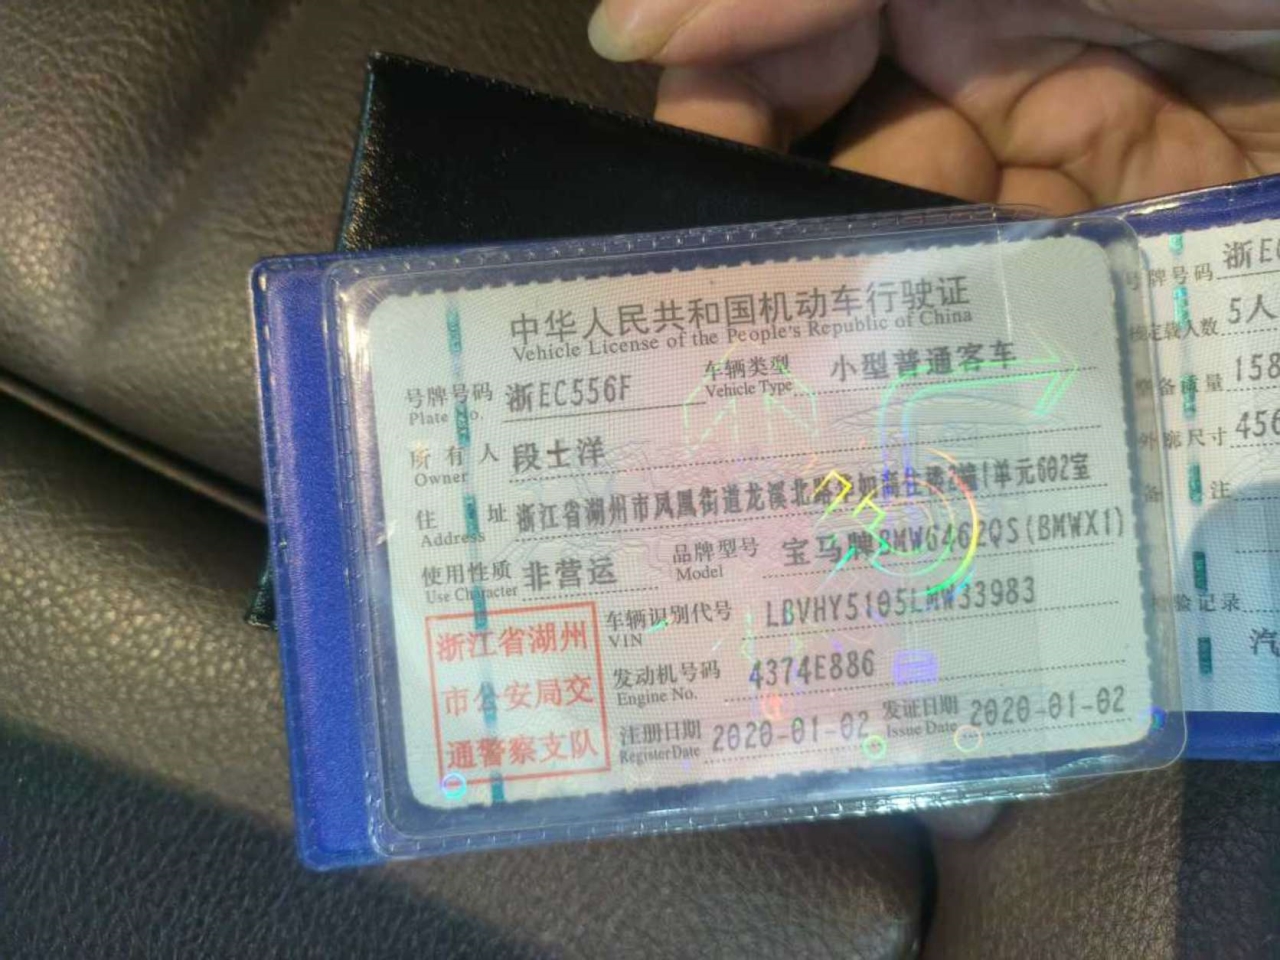 中华人民共和国机动车行驶证
Vehicle License of the People's Republic of China
号牌号码 浙EC556F 车辆类型 小型普通客车
Plate No. Vehicle Type
所有人 段士洋
Owner
住址 浙江省湖州市凤凰街道龙溪北路 1单元602室
Address
使用性质 非营运 品牌型号 宝马牌BMW6462QS(BMWX1)
Use Character Model
车辆识别代号 LBVHY5105LMW33983
VIN
发动机号码 4374E886
Engine No.
注册日期 2020-01-02 发证日期 2020-01-02
Register Date Issue Date
浙江省湖州
市公安局交
通警察支队
号牌号码 浙EC
核定载人数 5人
整备质量 158
外廓尺寸 456
备注
检验记录
汽